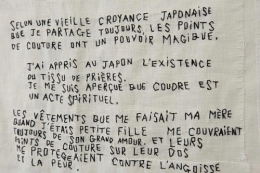 SELON UNE VIEILLE CROYANCE JAPONAISE
QUE JE PARTAGE TOUJOURS, LES POINTS
DE COUTURE ONT UN POUVOIR MAGIQUE.
J'AI APPRIS AU JAPON L'EXISTENCE
DU TISSU DE PRIÈRES.
JE ME SUIS APERÇUE QUE COUDRE EST
UN ACTE SPIRITUEL.
LES VÊTEMENTS QUE ME FAISAIT MA MÈRE
QUAND J'ÉTAIS PETITE FILLE ME COUVRAIENT
TOUJOURS DE SON GRAND AMOUR, ET LEURS
POINTS DE COUTURE SUR LEUR DOS
ME PROTÉGEAIENT CONTRE L'ANGOISSE
ET LA PEUR.